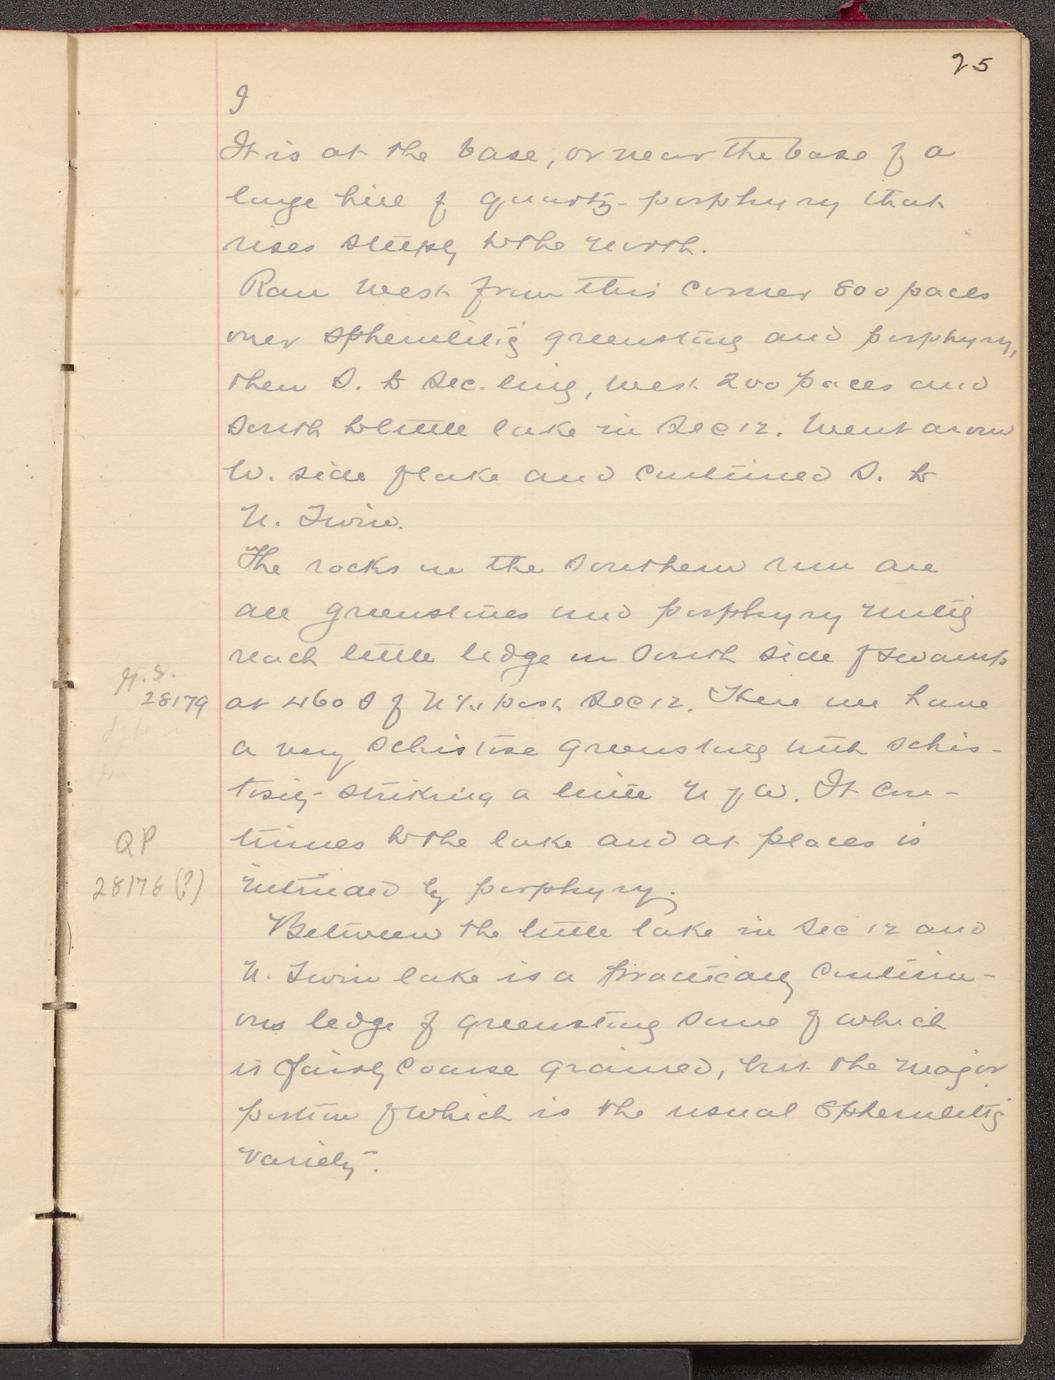 25
I
It is at the base, or near the base of a
large hill of quartz-porphyry that
rises steeply to the north.
Ran West from this corner 800 paces
over spherulitic greenstone and porphyry,
then S. to Sec. line, west 200 paces and
South to little lake in Sec 12. Went around
W. side of lake and continued S. to
N. Twin.
The rocks on the Southern run are
all greenstones and porphyry until
reach little ledge on South side of swamp
G.S.
28179
at 460 S of N ¼ post Sec 12. Here we have
a very schistose greenstone with schis-
tosity striking a little N of W. It con-
tinues to the lake and at places is
QP
28178 (?)
intruded by porphyry.
Between the little lake in Sec 12 and
N. Twin lake is a practically continu-
ous ledge of greenstone some of which
is fairly coarse grained, but the major
portion of which is the usual spherulitic
variety.